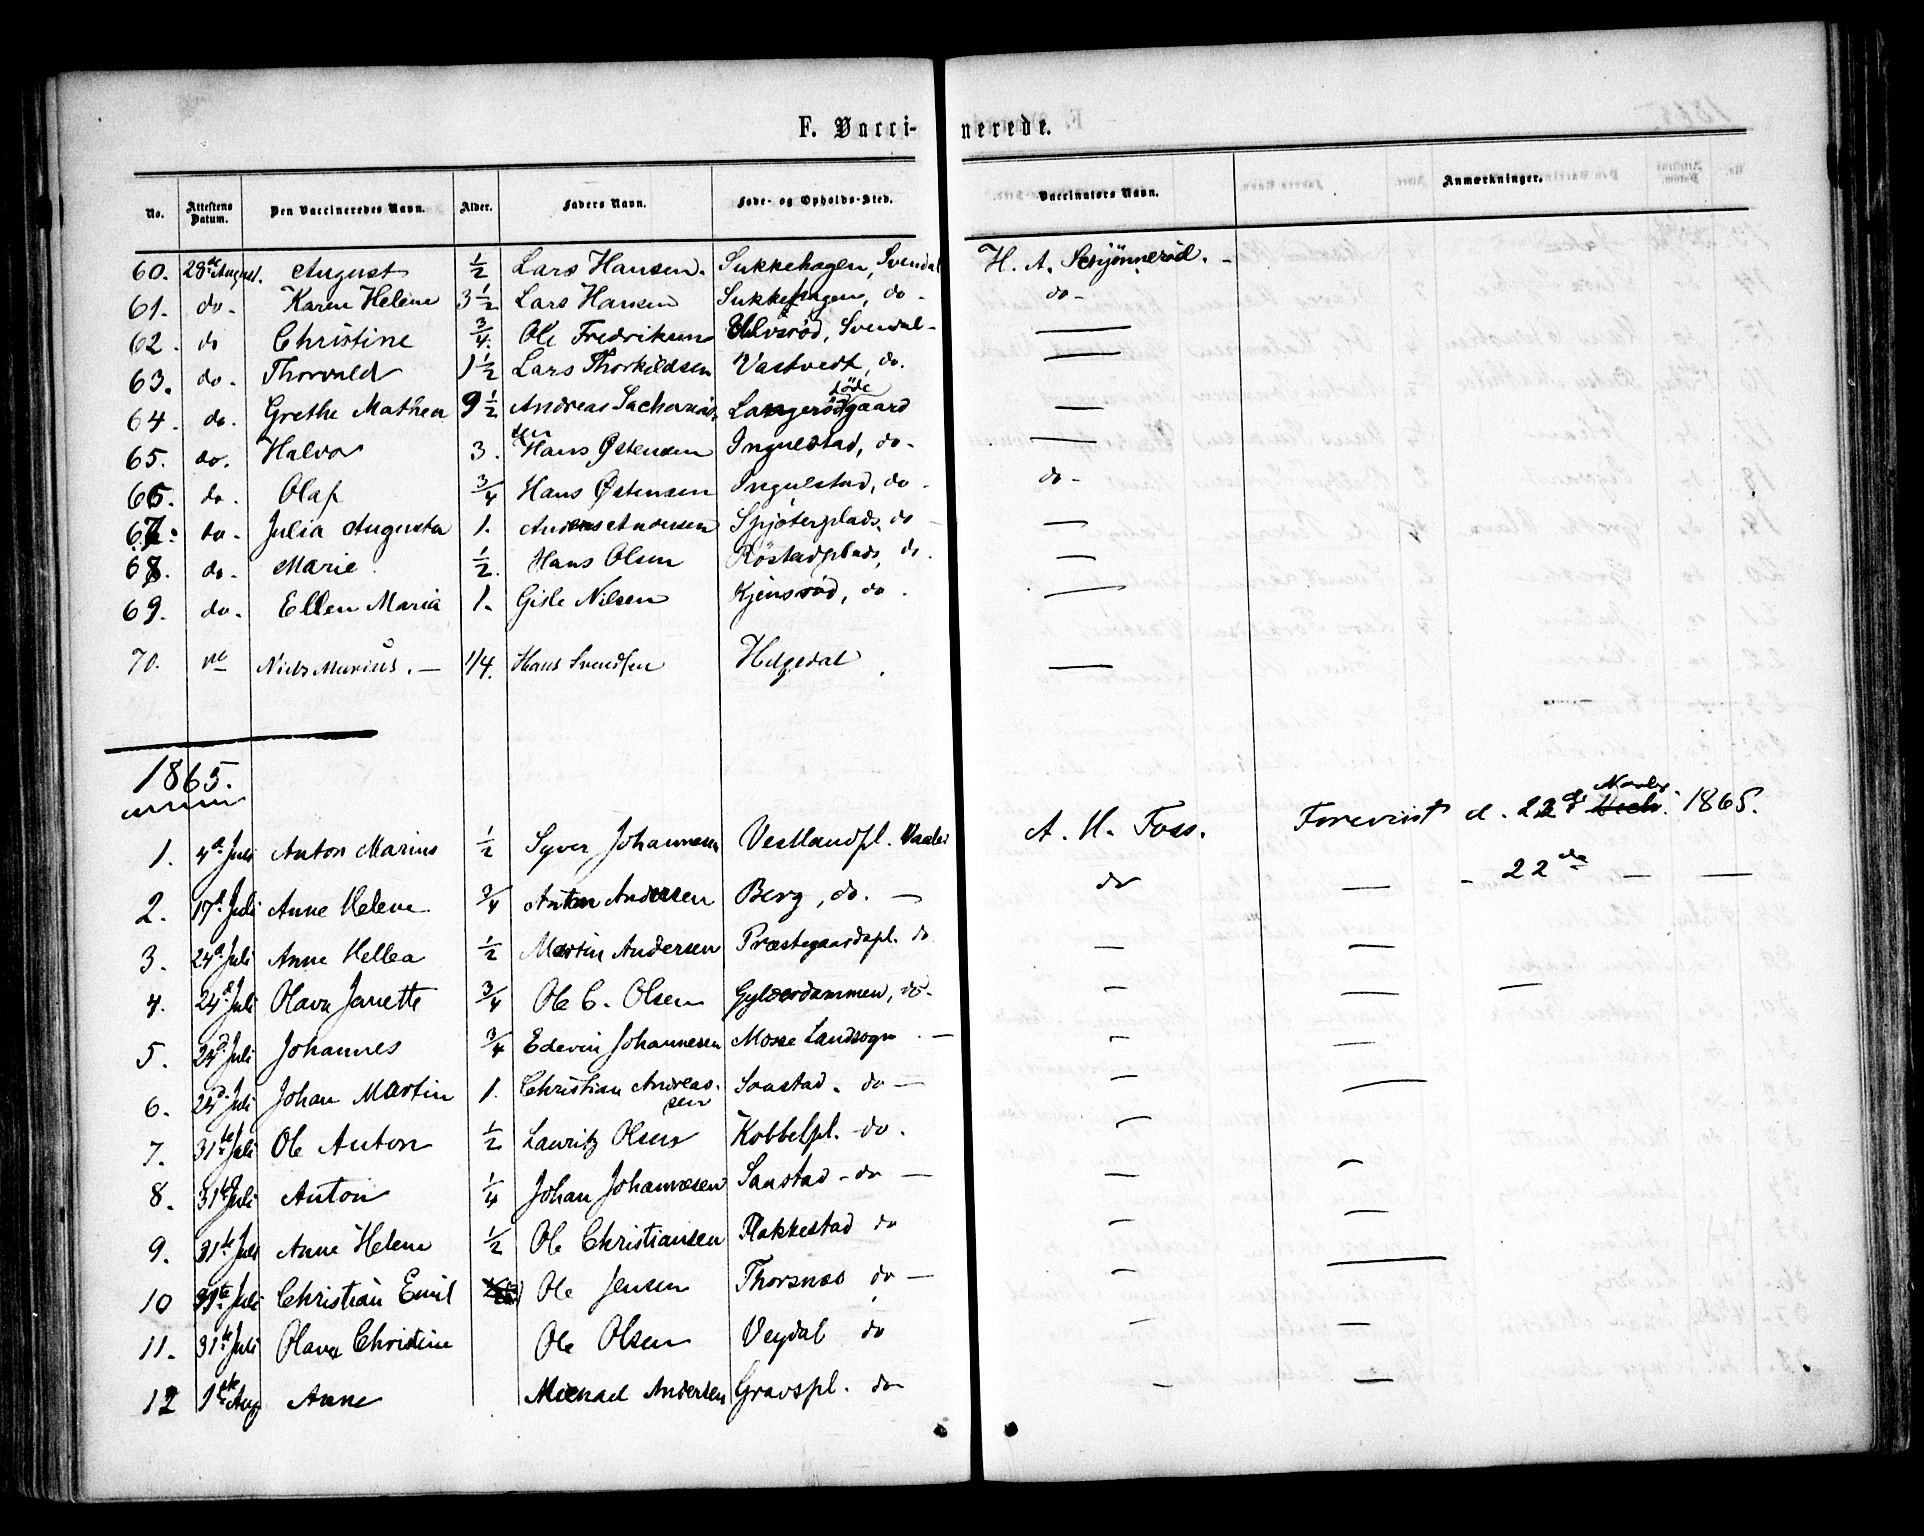 F. Vacci- nerede.
No. Attestens Datum. Den Vaccineredes Navn. Alder. Faders Navn. Føde- og Opholds-Sted. Vaccinators Navn. Anmærkninger.
60. 28de August. August 1/2 Lars Hansen. Sukkehagen, Svendal H. A. Schjønnerød. -
61. do- Karen Helene 3 1/2 Lars Hansen Sukkehagen, do- do-
62. do Christine 3/4. Ole Fredriksen Ulvsrød, Svendal- —
63. do- Thorvald 1 1/2 Lars Thorkildsen Vastvedt, do. —
64. do. Grethe Mathea 9 1/2 Andreas Zacharias- Langerødgaard —
sen
65. do. Halvor 3. Hans Østensen Ingulstad, do- —
66. do- Olaf 3/4 Hans Østensen Ingulstad, do- do-
67. do- Julia Augusta 1. Anders Andersen Spjøterplads, do —
68. do- Marie 1/2. Hans Olsen Röstadplads, do. —
69. do- Ellen Maria 1. Gisle Nilsen Kjensrød, do. —
70. do Niels Marius. — 1/4. Hans Svendsen Helgedal. —
1865.
1. 4de Juli Anton Marius 1/2 Syver Johannesen Vestlandpl. Vaaler A. H. Foss. Forevist d. 22de Novbr. Decb. 1865.
2. 17d Juli Anne Helene 3/4 Anton Andersen Berg, do. — do — - 22de — —
3. 24d Juli Anne Hellea 1/2 Martin Andersen Præstegaardspl. do — —
4. 24d Juli Olava Janette 3/4 Ole C. Olsen Gylderdammen, do. — — —
5. 24d Juli Johannes 3/4 Edevin Johannesen Mosse Landsogn. — — —
6. 24d Juli Johan Martin 1. Christian Andreas- Sonstad. do — — —
sen
7. 31te Juli Ole Anton 1/2 Lauritz Olsen Kobbelpl. -do. — —
8. 31te Juli Anton 1/4 Johan Johannesen Sanstad - do — — —
9. 31te Juli Anne Helene 1/2 Ole Christiansen Rakkestad do — —
10 31te Juli Christian Emil Ole Jensen Thorsnæs do — — —
11. 31te Juli Olava Christine Ole Olsen Vejdal do — —
12 1ste Aug Anne Michael Andersen Gravspl. do — —